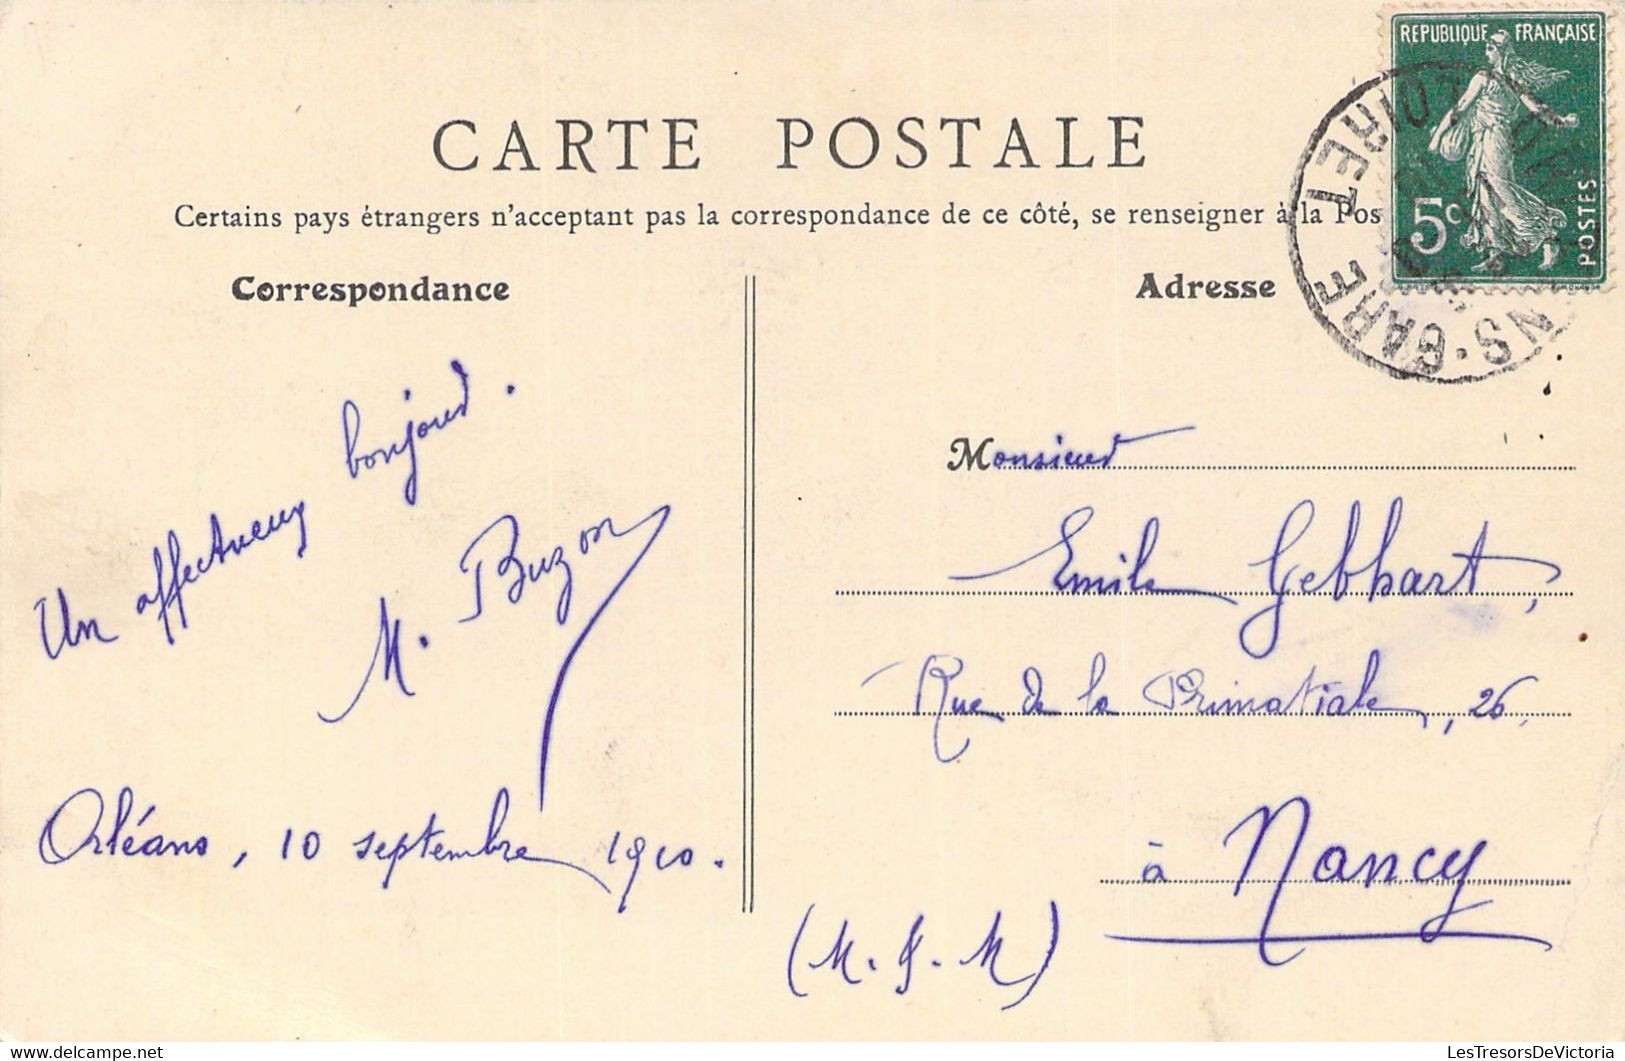 REPUBLIQUE FRANÇAISE
5c
POSTES
ORNS-GARE LOIRET
CARTE POSTALE
Certains pays étrangers n'acceptant pas la correspondance de ce côté, se renseigner à la Pos
Correspondance
Adresse
Un affectueux bonjour.
M. Buzon
Orléans, 10 septembre 1910.
Monsieur
Emile Gebhart,
Rue de la Primatiale, 26,
à Nancy
(M.&.M)
LesTresorsDeVictoria